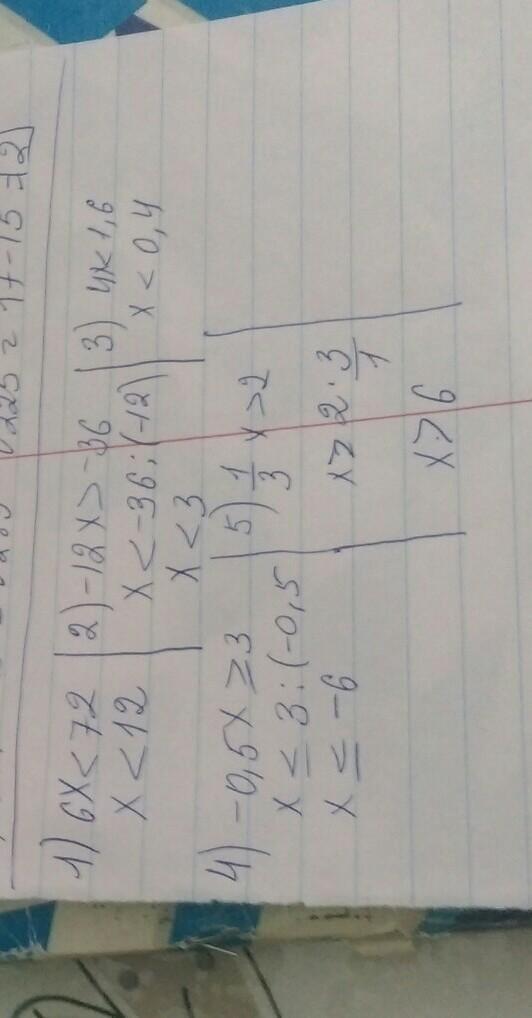 225 = 17-15 = 2
1) 6x < 72
x < 12
2) -12x > -36
x < -36 : (-12)
x < 3
3) 4x < 1,6
x < 0,4
4) -0,5x ≥ 3
x ≤ 3 : (-0,5
x ≤ -6
5) 1/3 x > 2
x > 2 · 3/1
x > 6